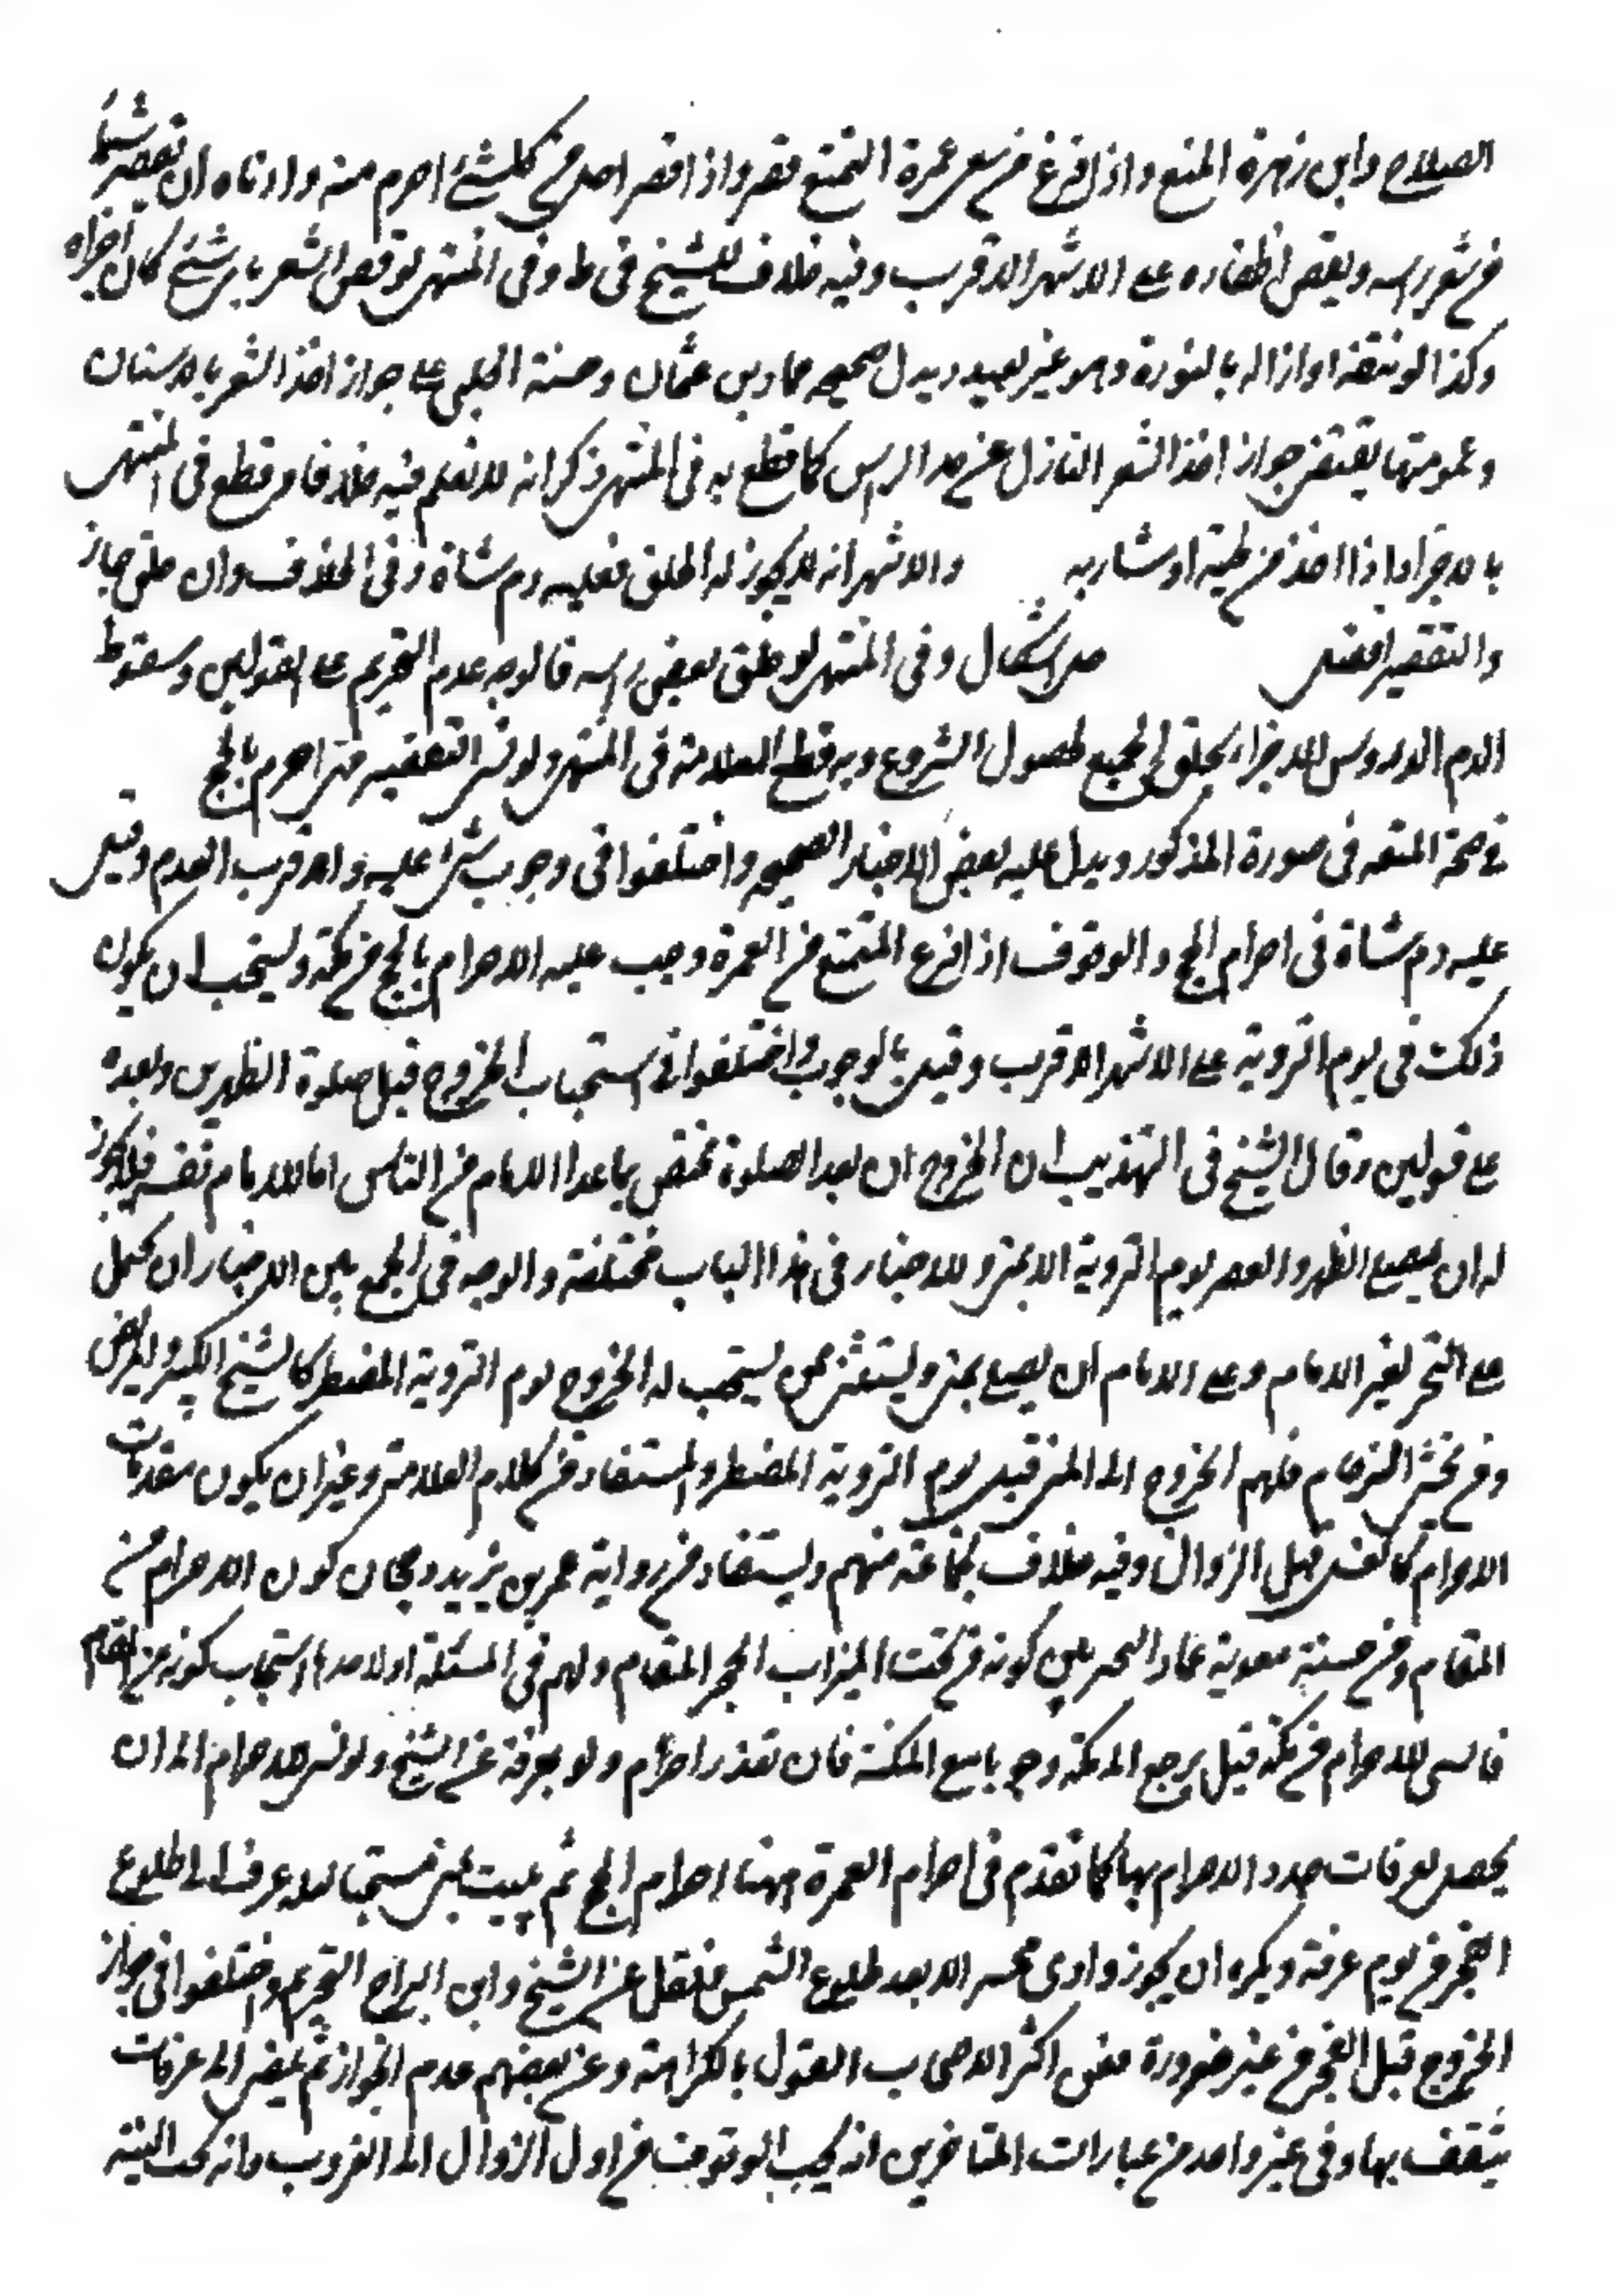 الصلاح وابن زهرة المنع واذا فرغ من سعى عمرة التمتع قصر واذا قصر احل من كلشئ احرم منه وادناه ان يقصر شيئا
من شعر راسه ويقص اظفاره على الاشهر الاقرب وفيه خلاف للشيخ فى ط وفى المنتهى لو قص الشعر باى شئ كان اجزاه
وكذا لو نتفه او ازاله بالنورة وهو غير بعيد ويدل صحيحه حماد بن عثمان وحسنة الحلبى على جواز اخذ الشعر بالاسنان
وعمومتها يقتضى جواز اخذ الشعر النازل عن حد الراس كما قطع به فى المنتهى وذكر انه لا نعلم فيه خلافا وقطع فى المنتهى
بالاجزا اذا اخذ من لحيته او شاربه والاشهر انه لا يجوز له الحلق فعليه دم شاة وفى الخلاف وان حلق جاز
والتقصير افضل محل اشكال وفى المنتهى لو حلق بعض راسه فالوجه عدم التحريم على القولين وسقوط
الدم الاجزاء بحلق الجميع لحصول الشروع وبه قطع العلامة فى المنتهى ولو نسى التقصير حتى احرم بالحج
صحة المتعه فى صورة المذكور ويدل عليه بعض الاخبار الصحيحه واختلفوا فى وجوب شئ عليه والاقرب العدم وقيل
عليه دم شاة فى احرام الحج والوقوف اذا فرغ المتمتع من العمرة وجب عليه الاحرام بالحج من مكة ويستحب ان يكون
ذلك فى يوم التروية على الاشهر الاقرب وقيل بالوجوب واختلفوا فى استحباب الخروج قبل صلوة الظهرين وبعده
على قولين وقال الشيخ فى التهذيب ان الخروج ان بعد الصلوة مختص بما عدا الامام من الناس اما الامام نفسه فلا يجوز
له ان يصلى الظهر والعصر يوم التروية الا بمنى والاخبار فى هذا الباب مختلفة والوجه فى الجمع بين الاخبار ان يحمل
على التخير لغير الامام وعلى الامام ان يصلى بمنى ويستثنى ممن يستحب له الخروج يوم التروية المضطر كالشيخ الكبير والمريض
ومن يخشى الزحام فلهم الخروج الى المنى قبل يوم التروية المضطر والمستفاد من كلام العلامة وغيره ان يكون مقدمات
الاحرام كالغسل قبل الزوال وفيه خلاف لجماعة منهم ويستفاد من رواية عمر بن يزيد رجحان كون الاحرام من
المقام ومن حسنة معوية عمار التخير بين كونه من تحت الميزاب الحجر المقام ولهم فى المسئلة اولا مدا استحباب كونه من المقام
فالسى الاحرام من مكة قيل يرجع الى مكة وجوبا مع المكنة فان تعذر احرام ولو بعرفة عن الشيخ ولو نسى الاحرام الى ان
يحصل بعرفات جدد الاحرام بها كما تقدم فى احرام العمرة مهنا احرام الحج ثم يبيت بمنى مستحبا ليلة عرفة الى طلوع
الفجر من يوم عرفة ويكره ان يجوز وادى محسر الا بعد طلوع الشمس فنقل عن الشيخ وابن البراج التحريم واختلفوا فى جواز
الخروج قبل الفجر من غير ضرورة فعن اكثر الاصحاب القول بالكراهة وعن بعضهم عدم الجواز ثم يمضى الى عرفات
فيقف بها وفى غير واحد من عبارات المتاخرين انه يجب الوقوف من اول الزوال الى الغروب وانه تجب النية